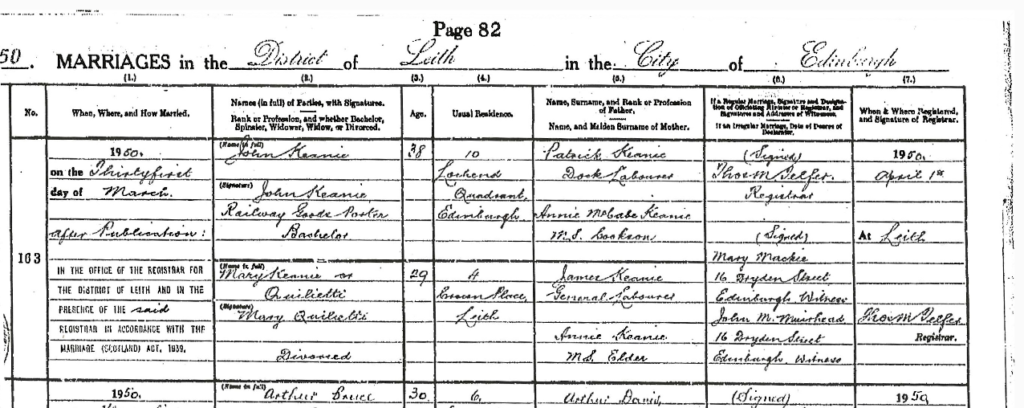 Page 82
50. MARRIAGES in the District of Leith in the City of Edinburgh
(1.) (2.) (3.) (4.) (5.) (6.) (7.)
No.
When, Where, and How Married.
Names (in full) of Parties, with Signatures.
Rank or Profession, and whether Bachelor,
Spinster, Widower, Widow, or Divorced.
Age.
Usual Residence.
Name, Surname, and Rank or Profession
of Father.
Name, and Maiden Surname of Mother.
If a Regular Marriage, Signature and Designation
of Officiating Minister or Registrar, and
Signatures and Addresses of Witnesses.
If an Irregular Marriage, Date of Decree of
Declarator.
When & Where Registered,
and Signature of Registrar.
163
1950.
on the Thirtyfirst
day of March.
After Publication:
IN THE OFFICE OF THE REGISTRAR FOR
THE DISTRICT OF LEITH AND IN THE
PRESENCE OF THE said
REGISTRAR IN ACCORDANCE WITH THE
MARRIAGE (SCOTLAND) ACT, 1939.
(Name in full)
John Keanie
(Signature)
John Keanie
Railway Goods Porter
Bachelor
(Name in full)
Mary Keanie or
Quilietti
(Signature)
Mary Quilietti
Divorced
38
29
10
Lochend
Quadrant,
Edinburgh
4
Place,
Leith
Patrick Keanie
Dock Labourer
Annie McCabe Keanie
M.S. Cookson
James Keanie
General Labourer
Annie Keanie
M.S. Elder
(Signed)
Thos M Telfer.
Registrar
(Signed)
Mary Mackie
16 Dryden Street,
Edinburgh Witness
John M. Muirhead
16 Dryden Street
Edinburgh Witness
1950.
April 1st
At Leith
Thos M Telfer
Registrar.
1950.
(Name in full)
Arthur Bruce
30.
6,
Arthur
(Signed)
1950